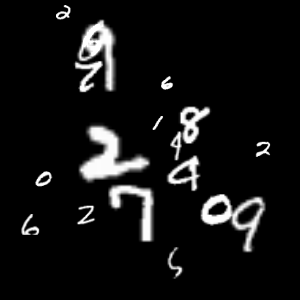 2
9
6
1 8
4
2 4 2
0
7 0 9
6 2
5